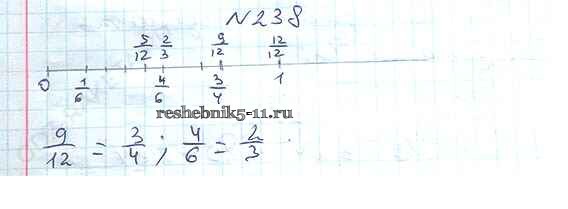 №238
5/12 2/3 9/12 12/12
0 1/6 4/6 3/4 1
reshebnik5-11.ru
9/12 = 3/4 ; 4/6 = 2/3